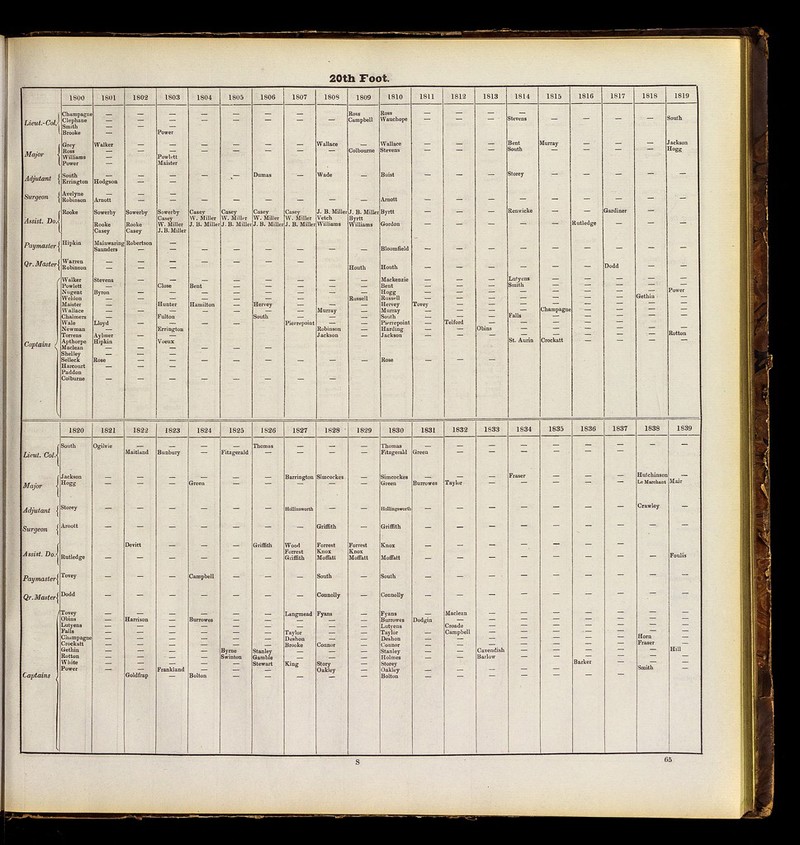 20th Foot.
1800 1801 1802 1803 1804 1805 1806 1807 1808 1809 1810 1811 1812 1813 1814 1815 1816 1817 1818 1819
Lieut.-Col.
Champagne — — — — — — — — Ross Ross — — — —
Clephane — — — — — — — — Campbell Wauchope — — — Stevens — — — — South
Smith — — —
Brooke — — Power
Major
Grey Walker — — — — — — Wallace — Wallace — — — Bent Murray — — — Jackson
Ross — — — — — — — — Colbourne Stevens — — — South — — — — Hogg
Williams — — Powlett
Power Maister
Adjutant
South — — — — .— Dumas — Wade — Buist — — — Storey — — — — —
Errington Hodgson — —
Surgeon
Avelyne — — —
Robinson Arnott — — — — — — — — Arnott — — — — — — — — —
Assist. Do.
Rooke Sowerby Sowerby Sowerby Casey Casey Casey Casey J. B. Miller J. B. Miller Byrtt — — — Renwicke — — Gardiner — —
Casey W. Miller W. Miller W. Miller W. Miller Veitch Byrtt
Rooke Rooke W. Miller J. B. Miller J. B. Miller J. B. Miller J. B. Miller Williams Williams Gordon — — — — — Rutledge — — —
Casey Casey J. B. Miller
Paymaster
Hipkin Mainwaring Robertson — — — — — — — —
Saunders Bloomfield — — — — — — — — —
Qr. Master
Warren — — —
Robinson — — — — — — — — Houth Houth — — — — — — Dodd — —
Captains
Walker Stevens — — — — — — — — Mackenzie — — — Lutyens — — — — —
Powlett — — Close Bent — — — — — Bent — — — Smith — — — — —
Nugent Byron — — — — — — — — Hogg — — — — — — — — Power
Weldon — — — — — — — — Russell Russell — — — — — — — Gethin —
Maister — — Hunter Hamilton — Hervey — — — Hervey Tovey — — — — — — — —
Wallace — — — — — — — Murray — Murray — — — — Champagne — — — —
Chalmers — — Fulton — — South — — — South — — — Falls — — — — —
Wale Lloyd — — — — — Pierrepoint — — Pierrepoint — Telford — — — — — — —
Newman — — Errington — — — — Robinson — Harding — — Obins — — — — — —
Torrens Aylmer — — — — — — Jackson — Jackson — — — — — — — — Rotton
Apthorpe Hipkin — Voeux St. Aurin Crockatt — — —
Maclean — — — — — —
Shelley — — —
Selleck Rose — — — — — — — — Rose — — —
Harcourt — — —
Paddon
Colburne — — — — — — — —
1820 1821 1822 1823 1824 1825 1826 1827 1828 1829 1830 1831 1832 1833 1834 1835 1836 1837 1838 1839
Lieut. Col.
South Ogilvie — — — — Thomas — — — Thomas — — — — — — — — —
Maitland Bunbury — Fitzgerald — — — — Fitzgerald Green — — — — — — — —
Major
Jackson — — — — — — Barrington Simcockes — Simcockes — — — Fraser — — — Hutchinson —
Hogg — — — Green — — — — — Green Burrowes Taylor — — — — — Le Marchant Mair
Adjutant
Storey — — — — — — Hollinsworth — — Hollingsworth — — — — — — — Crawley —
Surgeon
Arnott — — — — — — — Griffith — Griffith — — — — — — — — —
Assist. Do.
Devitt — — — Griffith Wood Forrest Forrest Knox — — — — — — —
Forrest Knox Knox
Rutledge — — — — — — Griffith Moffatt Moffatt Moffatt — — — — — — — — Foulis
Paymaster
Tovey — — — Campbell — — — South — South — — — — — — — — —
Qr. Master
Dodd — — — — — — — Connolly — Connolly — — — — — — — — —
Captains
Tovey — — — — — — Langmead Fyans — Fyans — Maclean — — — — — — —
Obins — Harrison — Burrowes — — — — — Burrowes Dodgin — — — — — — — —
Lutyens — — — — — — — — — Lutyens — Croade — — — — — — —
Falls — — — — — — Taylor — — Taylor — Campbell — — — — — — —
Champagne — — — — — — Deshon — — Deshon — — — — — — — Horn —
Crockatt — — — — — — Brooke Connor — Connor — — — — — — — Fraser —
Gethin — — — — Byrne Stanley — — — Stanley — — Cavendish — — — — — Hill
Rotton — — — — Swinton Gamble — — — Holmes — — Barlow — — — — — —
White — — — — — Stewart King Story — Storey — — — — — Barker — — —
Power — — Frankland — — — — Oakley — Oakley — — — — — — — Smith —
Goldfrap — Bolton — — — — — Bolton — — — — — —
S 65